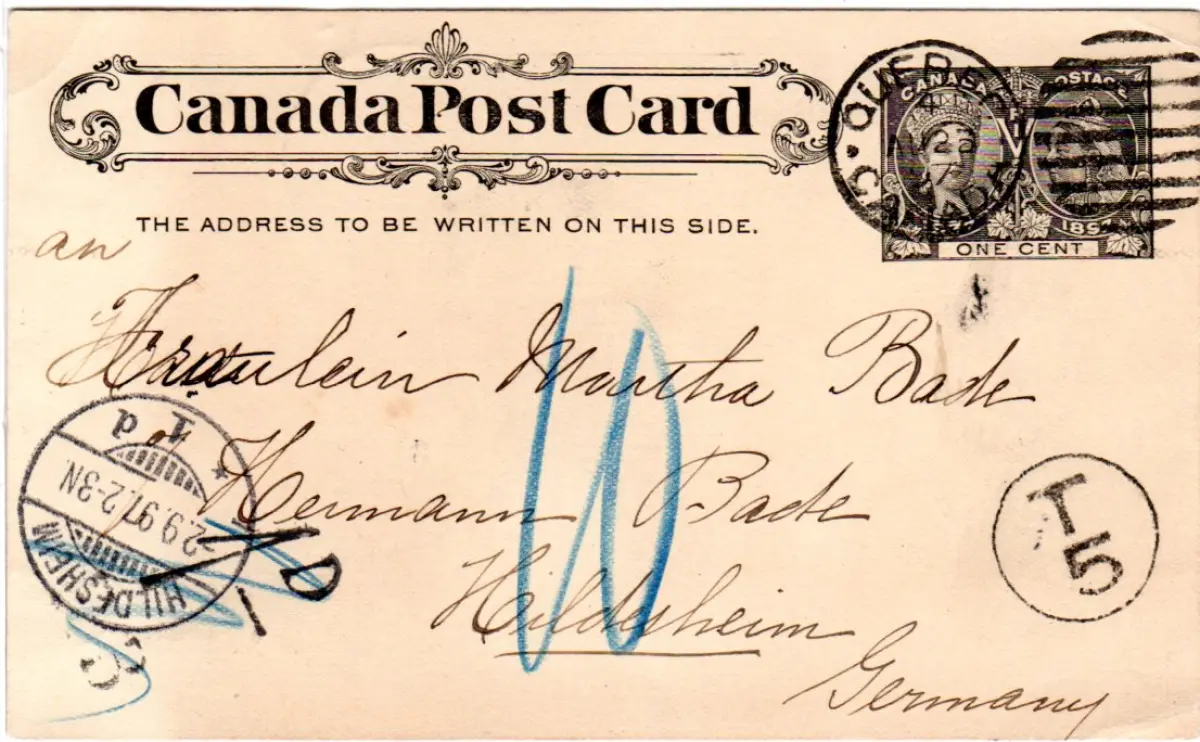 Canada Post Card
CANADA POSTAGE
QUEBEC
CANADA
ONE CENT
THE ADDRESS TO BE WRITTEN ON THIS SIDE.
an
Fräulein Martha Bade
Hermann Bade
Hildesheim
Germany
10
T
5
HILDESHEIM
2.9.97. 2-3N